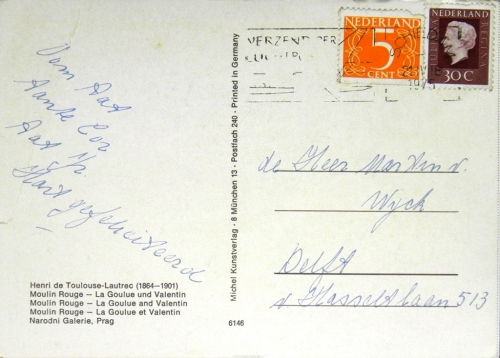 Oom Aat
Tante Cor
Aat Jr
Hart gefeliciteerd
Henri de Toulouse-Lautrec (1864—1901)
Moulin Rouge — La Goulue und Valentin
Moulin Rouge — La Goulue and Valentin
Moulin Rouge — La Goulue et Valentin
Narodni Galerie, Prag
6146
Michel Kunstverlag · 8 München 13 · Postfach 240 · Printed in Germany
NEDERLAND
5
CENT
NEDERLAND
30 C
de Heer Martin v.
Wyck
Delft
v Hasseltlaan 513